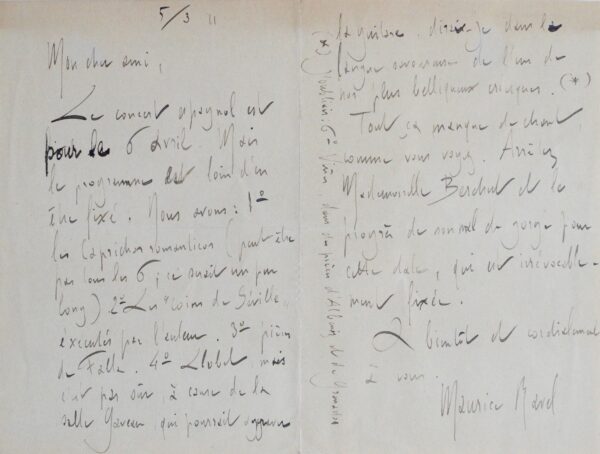 5/3 11
Mon cher ami,
Le concert espagnol est
pour le 6 avril. Mais
le programme est loin d'en
être fixé. Nous avons : 1º
les Caprichos romanticos (peut être
pas tous les 6 ; ce serait un peu
long) 2º Les "coins de Séville"
éxécutés par l'auteur. 3º pièces
de Falla. 4º Llobet, mais
c'est pas sûr, à cause de la
salle Gaveau, qui pourrait aggraver
la guitare, dirais-je dans la
langue savoureuse de l'un de
nos plus belliqueux critiques. (*)
Tout ça manque de chant,
comme vous voyez. Arrêtez
Mademoiselle et la
prière de non mal de gorge pour
cette date, qui est irrévocable-
ment fixée.
A bientôt et cordialement
à vous.
Maurice Ravel
(*) 6º Viñes, dans des pièces d'Albeniz et de Granados